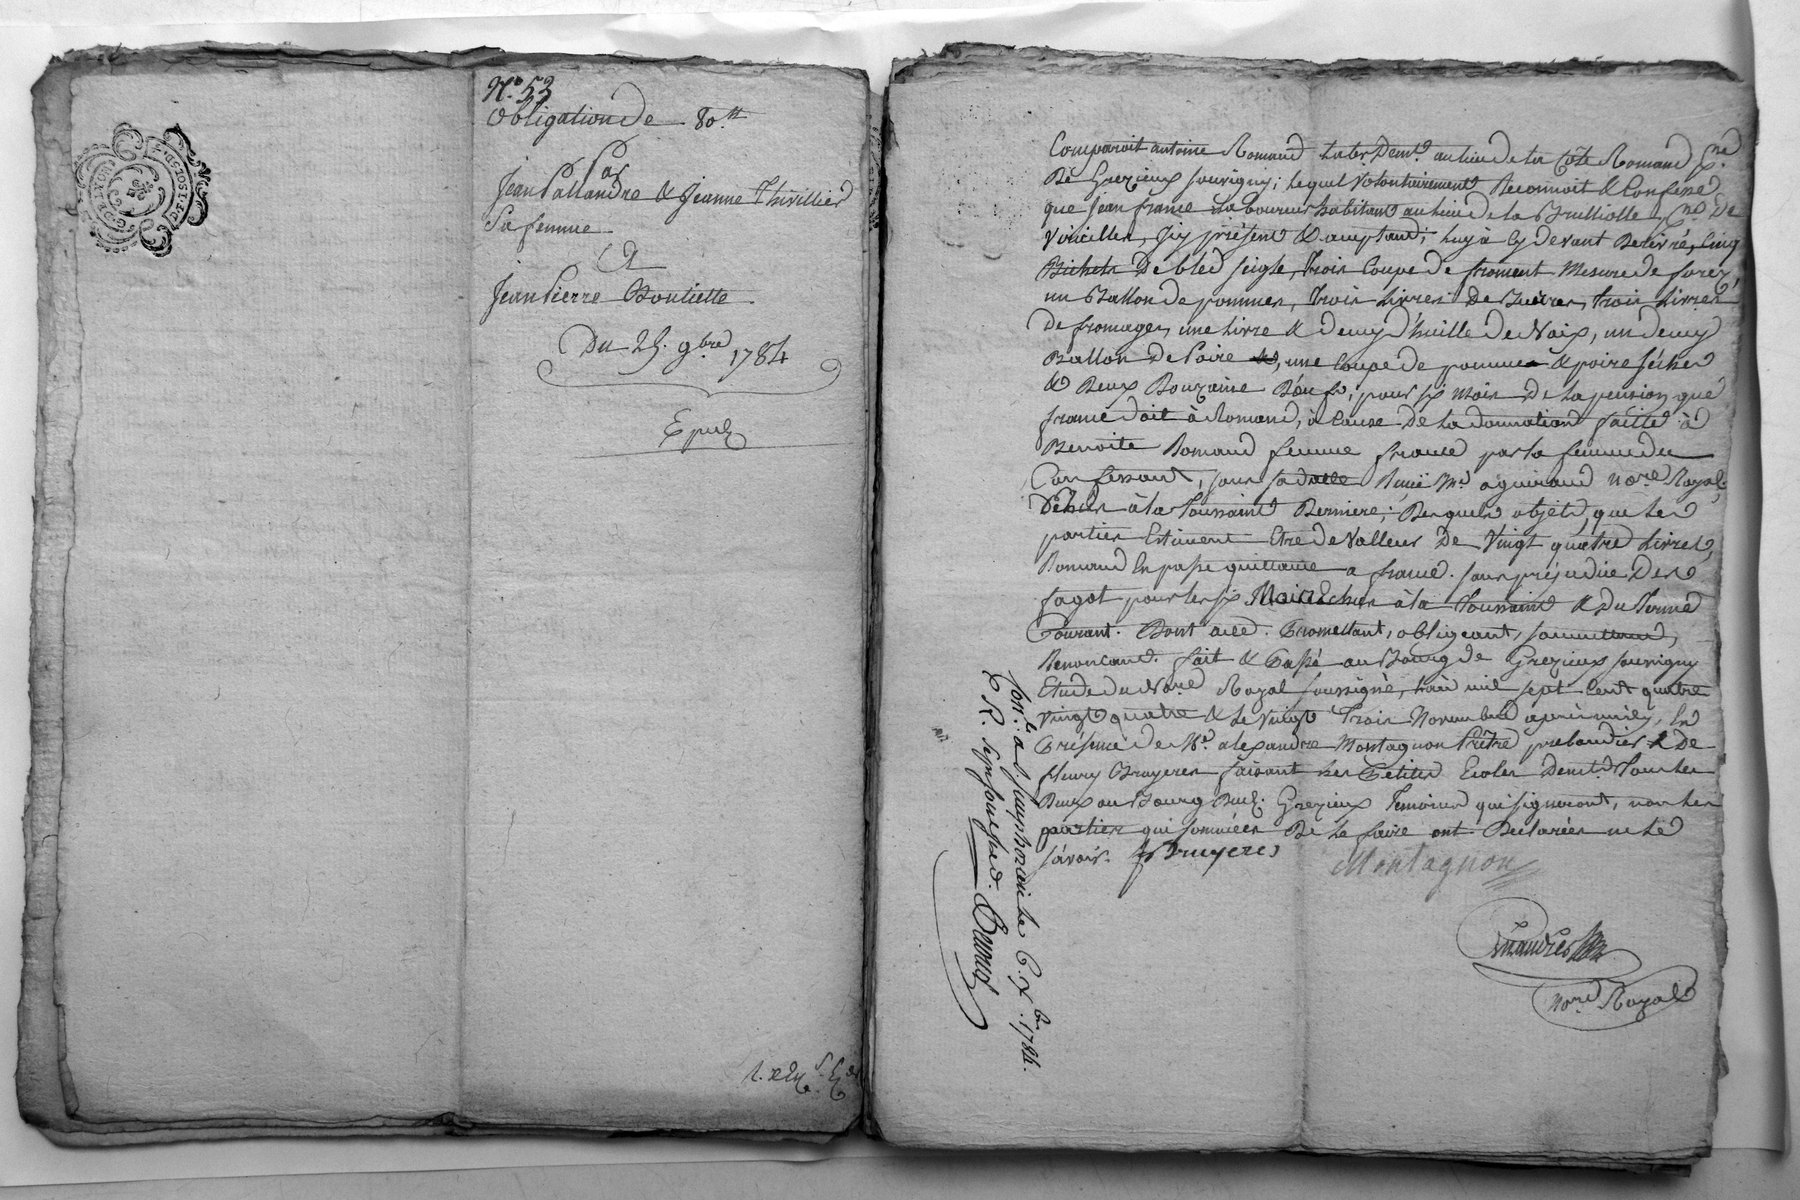 N.° 53
Obligation de 80.tt
Par
Jean Pallandre & Jeanne Thivillier
Sa femme
A
Jean Pierre Bouliette.
Du 25. 9.bre 1784
Exped.
G. DE LYON
2. S. DS. TOISI. DE
Comparoit antoine Romand Lab.r Dem.t au lieu de la Côte Romand P.sse
De Grezieux souvigny; lequel volontairement Reconnoit & Confesse
que Jean france Laboureur habitant au lieu de la Brulliolle P.sse De
Viricelles, Icy présent & acceptant; luy à Cy devant Delivré, Cinq
Bichets De bled seigle, trois Coupe de froment Mesure de forez,
un Ballon de pommes, trois Livres De Buërre, trois Livres
de fromages, une Livre & demy d'huille de Noix, un demy
Ballon De Poire, une Coupe de pomme & poire séches
& Deux Douzaine D'œufs; pour six mois De la pension que
france doit à Romand, à Cause De la donnation faitte à
Benoite Romand femme france par la femme du
Confessant, pour
Echus à la Toussaint Derniere; Desquels objets, que les
parties Estiment Etre de Valleur De Vingt quatre Livres,
Romand En passe quittance a france. sans préjudice Des
fagot pour les six Mois Echus à la Toussaint & Du Terme
Courant. Dont acte. Promettant, obligeant, soumettant,
Renonçant. fait & Passé au Bourg de Grezieux souvigny
Etude du No.re Royal soussigné, L'an mil sept Cent quatre
Vingt quatre & le Vingt Trois Novembre après midy, En
Présence de M.e alexandre Montagnon Prêtre prebandier & De
fleury Bruyeres faisant les Petites Ecoles Dem.t Tous les
Deux au Bourg Dud. Grezieux Temoins qui signeront, non les
parties qui sommées De le faire ont Declarées ne le
sávoir. f Bruyeres
Montagnon
No.re Royal
Con.lé a S. Symphorien le 6. X.bre 1784.